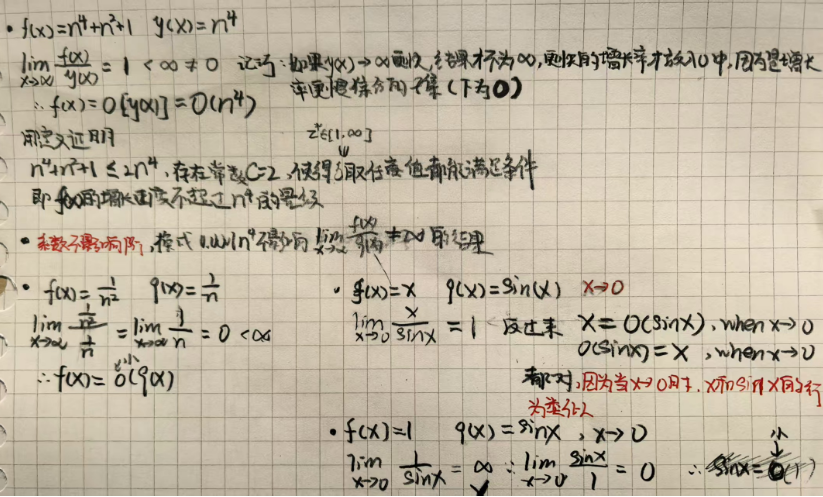 • f(x)=n⁴+n²+1 y(x)=n⁴
lim x→∞ f(x)/y(x) = 1 < ∞ ≠ 0 记巧:如果y(x)→∞更快,结果才不为∞,更快的增长率才放入O中,因为是增长
∴ f(x)=O[y(x)]=O(n⁴) 率更慢 (下为O)
用定义证明 z⁺∈[1,∞]
n⁴+n²+1 ≤ 2n⁴,存在常数C=2,使得 取任意值都能满足条件
即 f(x)的增长速度不超过n⁴的
• 系数不影响阶,换成 n⁴不影响 lim x→∞ f(x)/g(x) ≠ ∞ 的结果
• f(x)=1/n² g(x)=1/n
lim x→∞ (1/n²)/(1/n) = lim x→∞ 1/n = 0 < ∞
小
∴ f(x)=o(g(x))
• f(x)=x g(x)=sin(x) x→0
lim x→0 x/sinx = 1 反过来 x=O(sinx), when x→0
O(sinx)=x, when x→0
都对,因为当x→0时,x和sin x的行
为类似
• f(x)=1 g(x)=sinx , x→0
小
lim x→0 1/sinx = ∞ ∵ lim x→0 sinx/1 = 0 ∴ sinx=o(1)